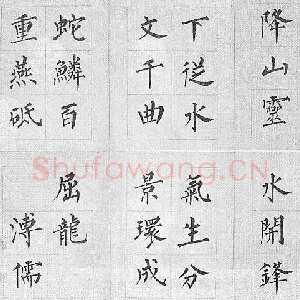 降山靈
下從水
文千曲
蛇鱗百
重燕砥
水開鋒
氣生分
景環成
屈龍
溥儒
Shufawang.CN